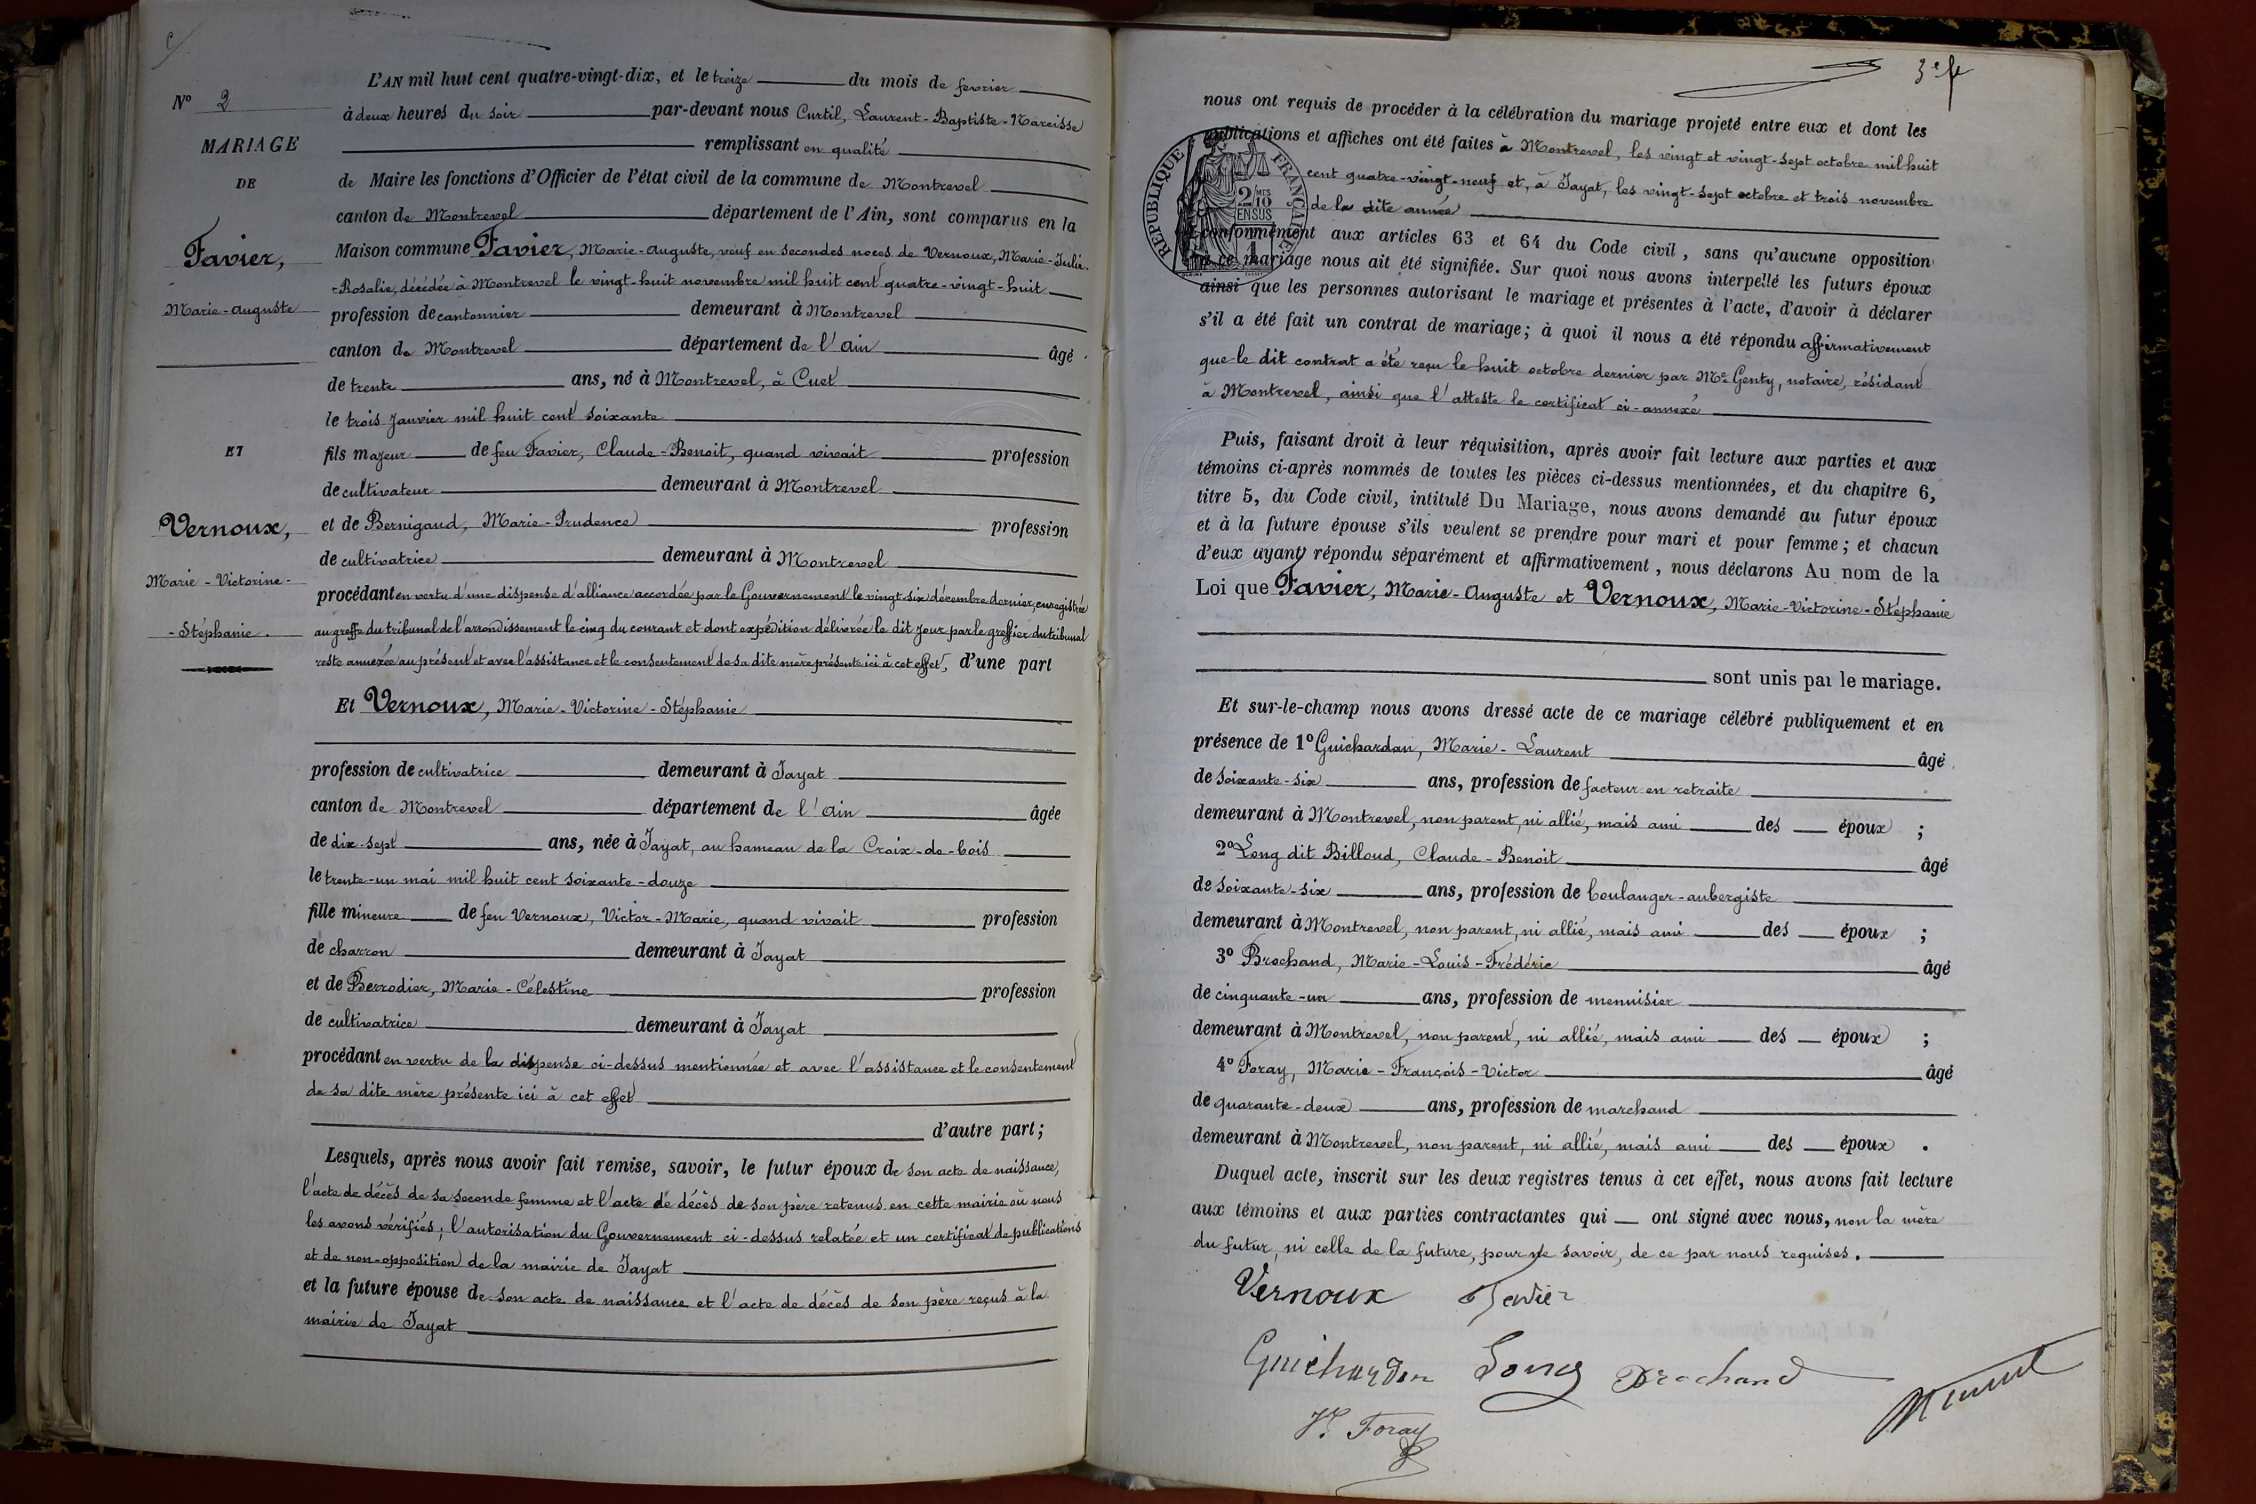 N° 2
MARIAGE
DE
Favier,
Marie-Auguste
ET
Vernoux,
Marie-Victorine-
-Stéphanie.
L'AN mil huit cent quatre-vingt-dix, et le treize du mois de fevrier
à deux heures du soir par-devant nous Curtil, Laurent-Baptiste-Narcisse
remplissant en qualité
de Maire les fonctions d'Officier de l'état civil de la commune de Montrevel
canton de Montrevel département de l'Ain, sont comparus en la
Maison commune Favier, Marie-Auguste, veuf en secondes noces de Vernoux, Marie-Julie-
-Rosalie, décédée à Montrevel le vingt-huit novembre mil huit cent quatre-vingt-huit
profession de cantonnier demeurant à Montrevel
canton de Montrevel département de l'Ain âgé
de trente ans, né à Montrevel, à Cuet
le trois Janvier mil huit cent soixante
fils majeur de feu Favier, Claude-Benoit, quand vivait profession
de cultivateur demeurant à Montrevel
et de Bernigaud, Marie-Prudence profession
de cultivatrice demeurant à Montrevel
procédant en vertu d'une dispense d'alliance accordée par le Gouvernement le vingt-six décembre dernier, enregistrée
au greffe du tribunal de l'arrondissement le cinq du courant et dont expédition délivrée le dit jour par le greffier du tribunal
reste annexée au présent et avec l'assistance et le consentement de sa dite mère présente ici à cet effet, d'une part
Et Vernoux, Marie-Victorine-Stéphanie
profession de cultivatrice demeurant à Jayat
canton de Montrevel département de l'Ain âgée
de dix-sept ans, née à Jayat, au hameau de la Croix-de-bois
le trente-un mai mil huit cent soixante-douze
fille mineure de feu Vernoux, Victor-Marie, quand vivait profession
de charron demeurant à Jayat
et de Berrodier, Marie-Célestine profession
de cultivatrice demeurant à Jayat
procédant en vertu de la dispense ci-dessus mentionnée et avec l'assistance et le consentement
de sa dite mère présente ici à cet effet
d'autre part;
Lesquels, après nous avoir fait remise, savoir, le futur époux de son acte de naissance,
l'acte de décès de sa seconde femme et l'acte de décès de son père retenus en cette mairie où nous
les avons vérifiés; l'autorisation du Gouvernement ci-dessus relatée et un certificat de publications
et de non-opposition de la mairie de Jayat
et la future épouse de son acte de naissance et l'acte de décès de son père reçus à la
mairie de Jayat
3e f
nous ont requis de procéder à la célébration du mariage projeté entre eux et dont les
publications et affiches ont été faites à Montrevel, les vingt et vingt-sept octobre mil huit
cent quatre-vingt-neuf et, à Jayat, les vingt-sept octobre et trois novembre
de la dite année
RÉPUBLIQUE FRANÇAISE
2/10 EN SUS
conformément aux articles 63 et 64 du Code civil, sans qu'aucune opposition
à ce mariage nous ait été signifiée. Sur quoi nous avons interpellé les futurs époux
ainsi que les personnes autorisant le mariage et présentes à l'acte, d'avoir à déclarer
s'il a été fait un contrat de mariage; à quoi il nous a été répondu affirmativement
que le dit contrat a été reçu le huit octobre dernier par Me Genty, notaire, résidant
à Montrevel, ainsi que l'atteste le certificat ci-annexé
Puis, faisant droit à leur réquisition, après avoir fait lecture aux parties et aux
témoins ci-après nommés de toutes les pièces ci-dessus mentionnées, et du chapitre 6,
titre 5, du Code civil, intitulé Du Mariage, nous avons demandé au futur époux
et à la future épouse s'ils veulent se prendre pour mari et pour femme; et chacun
d'eux ayant répondu séparément et affirmativement, nous déclarons Au nom de la
Loi que Favier, Marie-Auguste et Vernoux, Marie-Victorine-Stéphanie
sont unis par le mariage.
Et sur-le-champ nous avons dressé acte de ce mariage célébré publiquement et en
présence de 1° Guichardan, Marie-Laurent âgé
de soixante-six ans, profession de facteur en retraite
demeurant à Montrevel, non parent, ni allié, mais ami des époux ;
2° Long dit Billoud, Claude-Benoit âgé
de soixante-six ans, profession de boulanger-aubergiste
demeurant à Montrevel, non parent, ni allié, mais ami des époux ;
3° Brochand, Marie-Louis-Frédéric âgé
de cinquante-un ans, profession de menuisier
demeurant à Montrevel, non parent, ni allié, mais ami des époux ;
4° Foray, Marie-François-Victor âgé
de quarante-deux ans, profession de marchand
demeurant à Montrevel, non parent, ni allié, mais ami des époux .
Duquel acte, inscrit sur les deux registres tenus à cet effet, nous avons fait lecture
aux témoins et aux parties contractantes qui ont signé avec nous, non la mère
du futur, ni celle de la future, pour ne savoir, de ce par nous requises.
Vernoux Favier
Guichardan Long Brochand
Vr. Foray